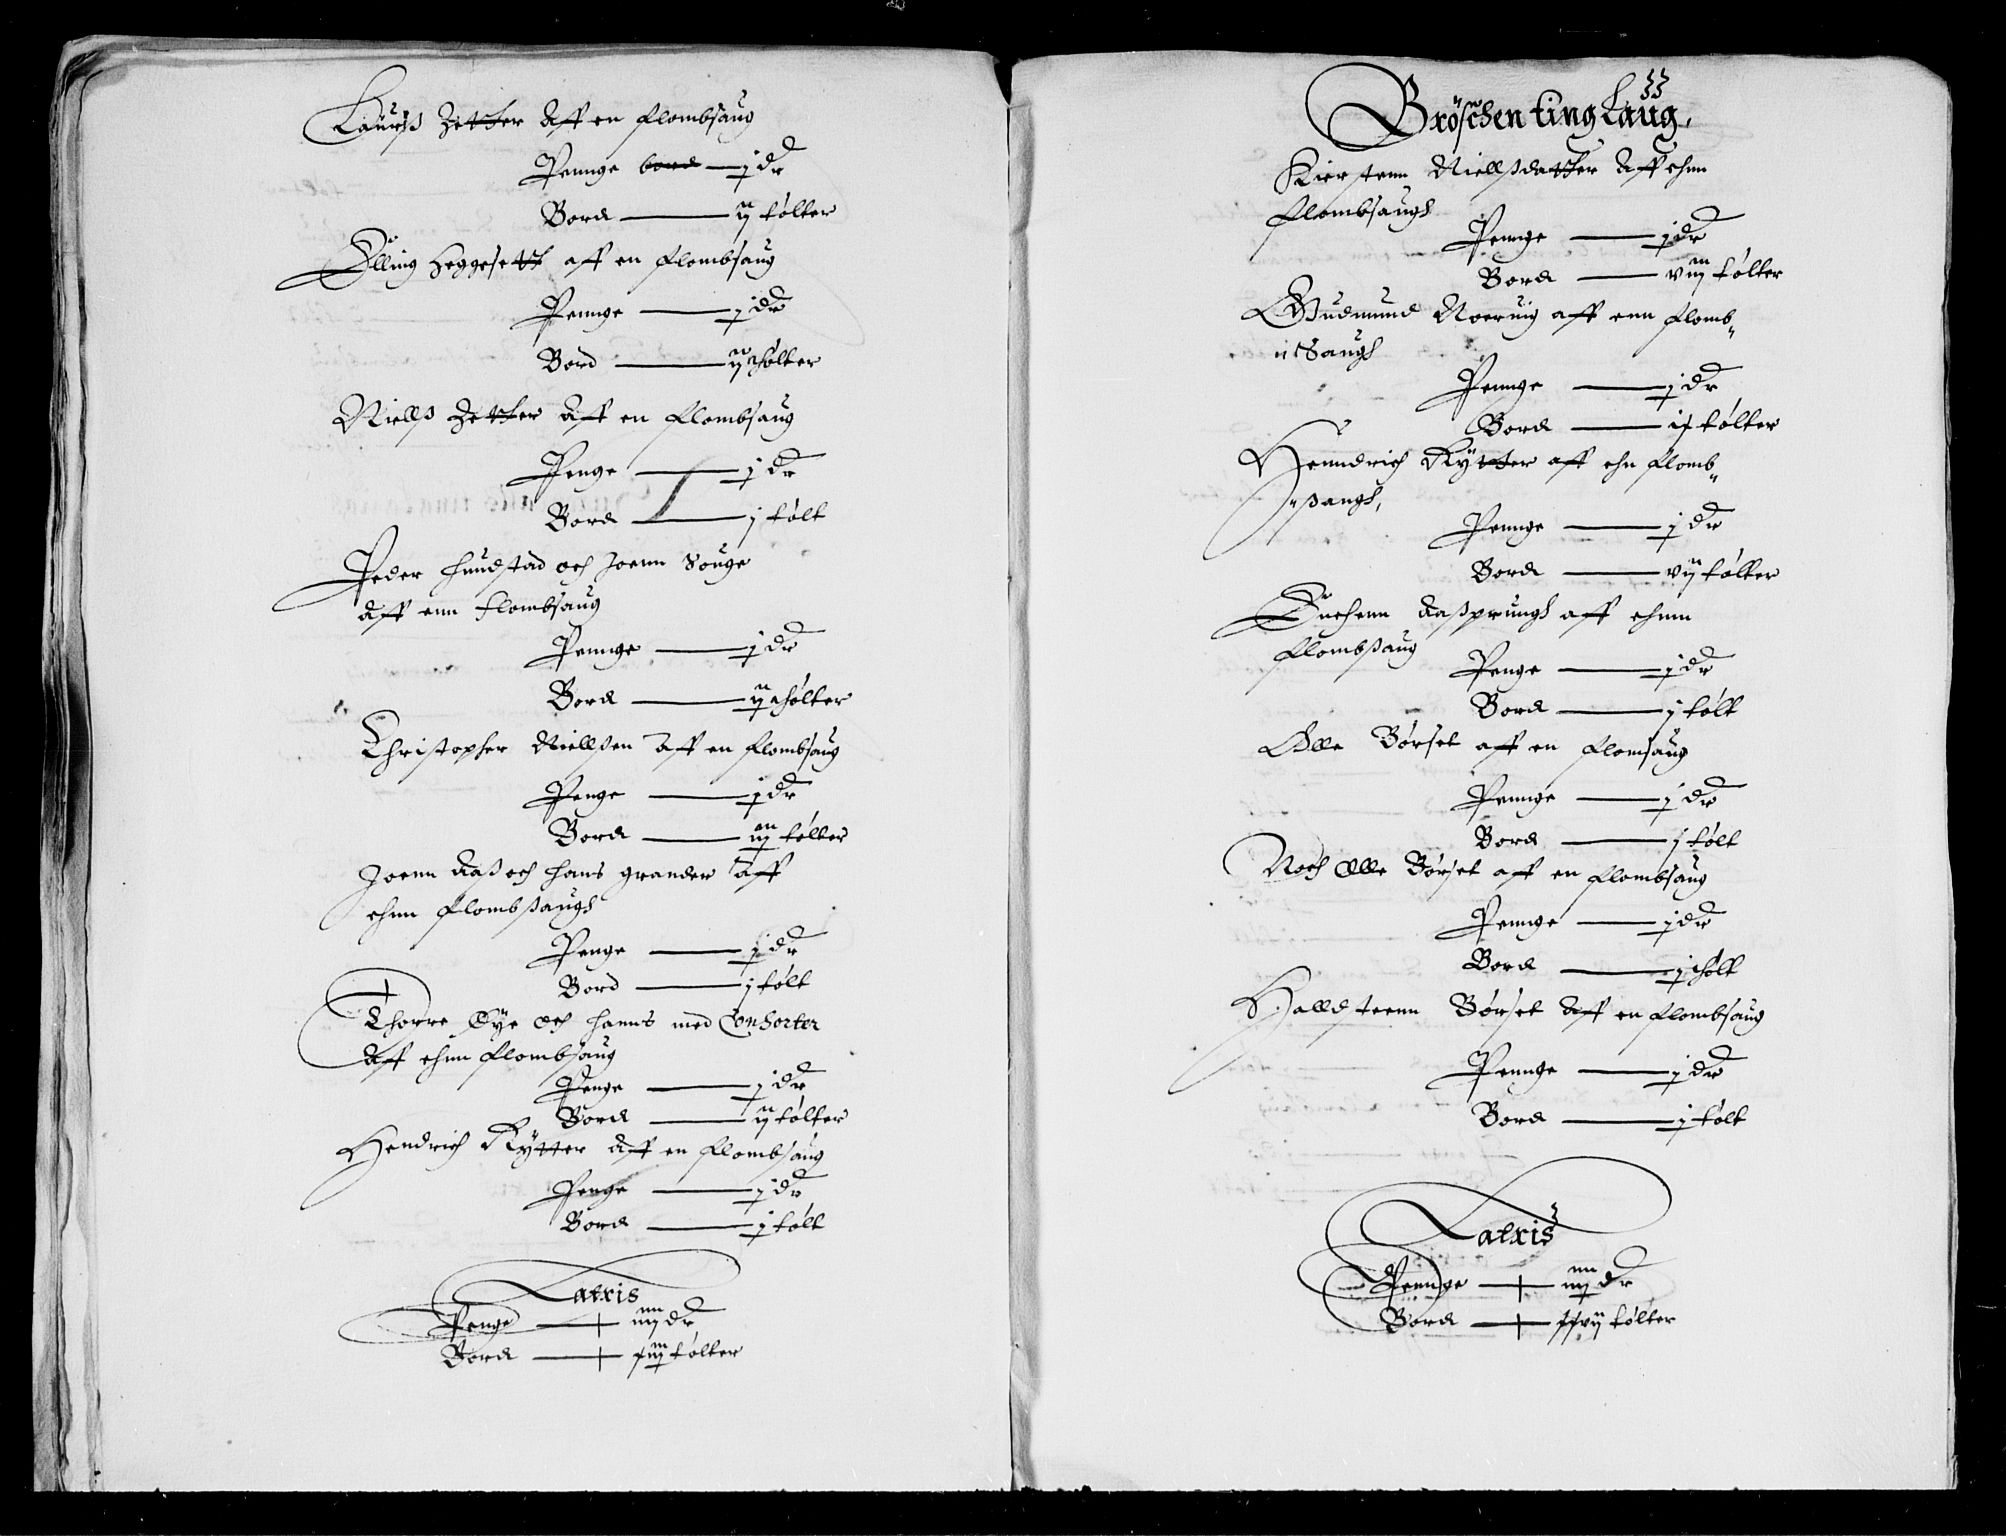 Laurß Zetter Aff en flombsaug
Pennge bord — j dr
Bord — ij tølter
Elling Heggesett aff en flombsaug
Pennge — j dr
Bord — ij thølter
Niellß Zetter Aff en flombsaug
Penge — j dr
Bord — j tølt
Peder Hundstad och Joenn Souge
Aff enn flombsaug
Pennge — j dr
Bord — ij thølter
Christopher Niellßen Aff en flombsaug
Penge — j dr
Bord — iij tølter
Joenn Aaß och Hans grander Aff
ehnn flombßaugh
Penge — j dr
Bord — j tølt
Thorre Øye och Hanns med Consorter
Aff ehnn flombsaug
Penge — j dr
Bord — ij tølter
Hendrich Rytter Aff en flombsaug
Penge — j dr
Bord — j tølt
Latxis
Penge — dr
Bord — tølter
Bröschen ting Laug.
Kierstenn Niellßdatter Aff ehnn
flombsaugh
Pennge — j dr
Bord — viij tølter
Gudmund Noeruig aff enn flomb"
"saugh
Pennge — j dr
Bord — tølter
Henndrich Rytter aff ehn flomb"
"ßaugh,
Pennge — j dr
Bord — vij tølter
Aaßprungh aff ehnn
flombßaug
Penge — j dr
Bord — j tølt
Olle Børset aff en flomsaug
Pennge — j dr
Bord — j tølt
Noch Olle Børset aff en flombsaug
Pennge — j dr
Bord — j thølt
Halldsteenn Børset Aff en flombsaug
Pennge — j dr
Bord — j tølt
Latxis
Pennge — dr
Bord — xxvij tølter